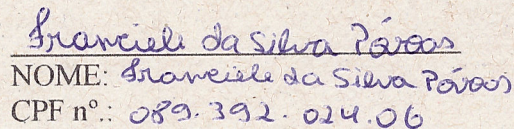 Franciele da Silva Póvoas
NOME: Franciele da Silva Póvoas
CPF nº.: 089.392.024.06